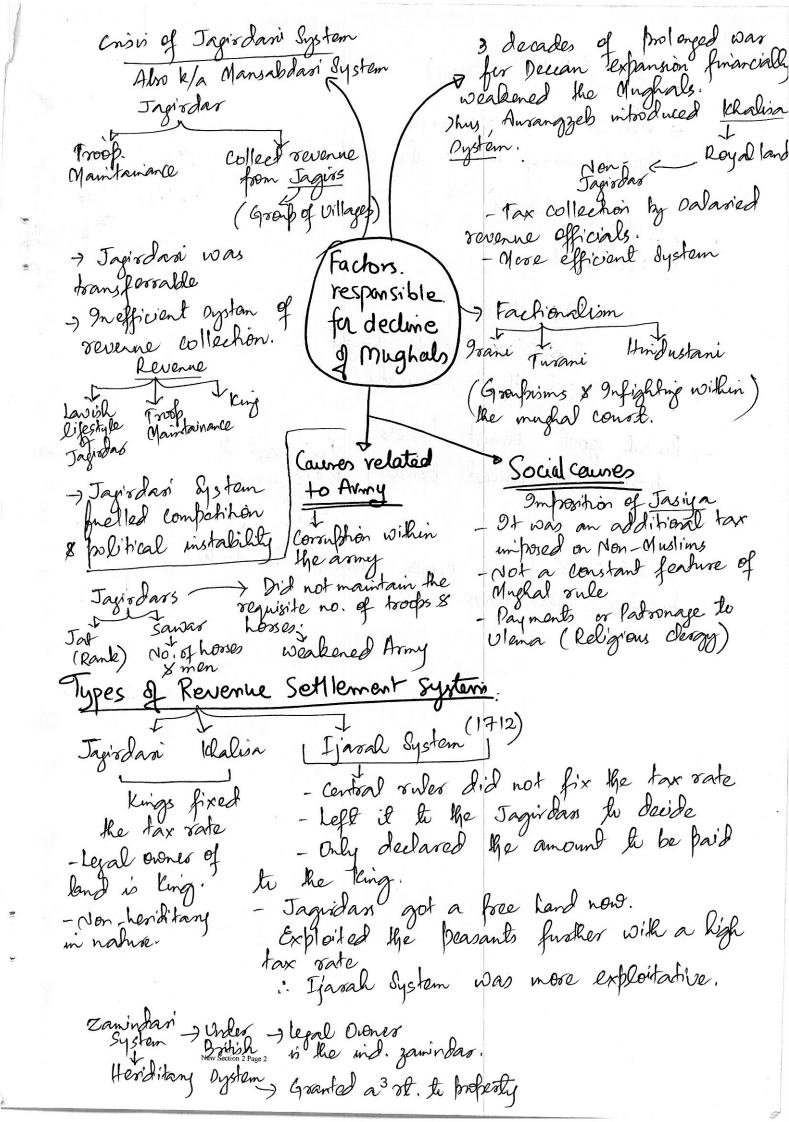 Crisis of Jagirdari System
Also k/a Mansabdari System
Jagirdar
Troop
Maintainance
Collect revenue
from Jagirs
(Group of Villages)
→ Jagirdari was
transferrable
→ Inefficient system of
revenue collection.
Revenue
Lavish
lifestyle
of
Jagirdar
Troop
Maintainance
King
→ Jagirdari System
fuelled competition
& political instability
3 decades of prolonged war
for Deccan expansion financially
weakened the Mughals.
Thus, Aurangzeb introduced Khalisa
System.
Royal land
Non-
Jagirdar
- Tax collection by salaried
revenue officials.
- More efficient System
Factors
responsible
for decline
of Mughals
→ Factionalism
Irani
Turani
Hindustani
(Groupisms & Infighting within
the mughal court.)
Causes related
to Army
Corruption within
the army
Jagirdars → Did not maintain the
requisite no. of troops &
horses.
Jat
(Rank)
Sawar
No. of horses
& men
weakened Army
Social causes
Imposition of Jasiya
- It was an additional tax
imposed on Non-Muslims
- Not a constant feature of
Mughal rule
- Payments or Patronage to
Ulema (Religious clergy)
Types of Revenue Settlement Systems:
Jagirdari
Khalisa
Ijarah System (1712)
Kings fixed
the tax rate
- Legal owner of
land is King.
- Non-heriditary
in nature.
- Central ruler did not fix the tax rate
- Left it to the Jagirdars to decide
- Only declared the amount to be paid
to the King.
- Jagirdars got a free hand now.
Exploited the peasants further with a high
tax rate
∴ Ijarah System was more exploitative.
Zamindari
System → Under
British → Legal Owner
is the ind. zamindar.
New Section 2 Page 2
Heriditary System → Granted a³ rt. to property